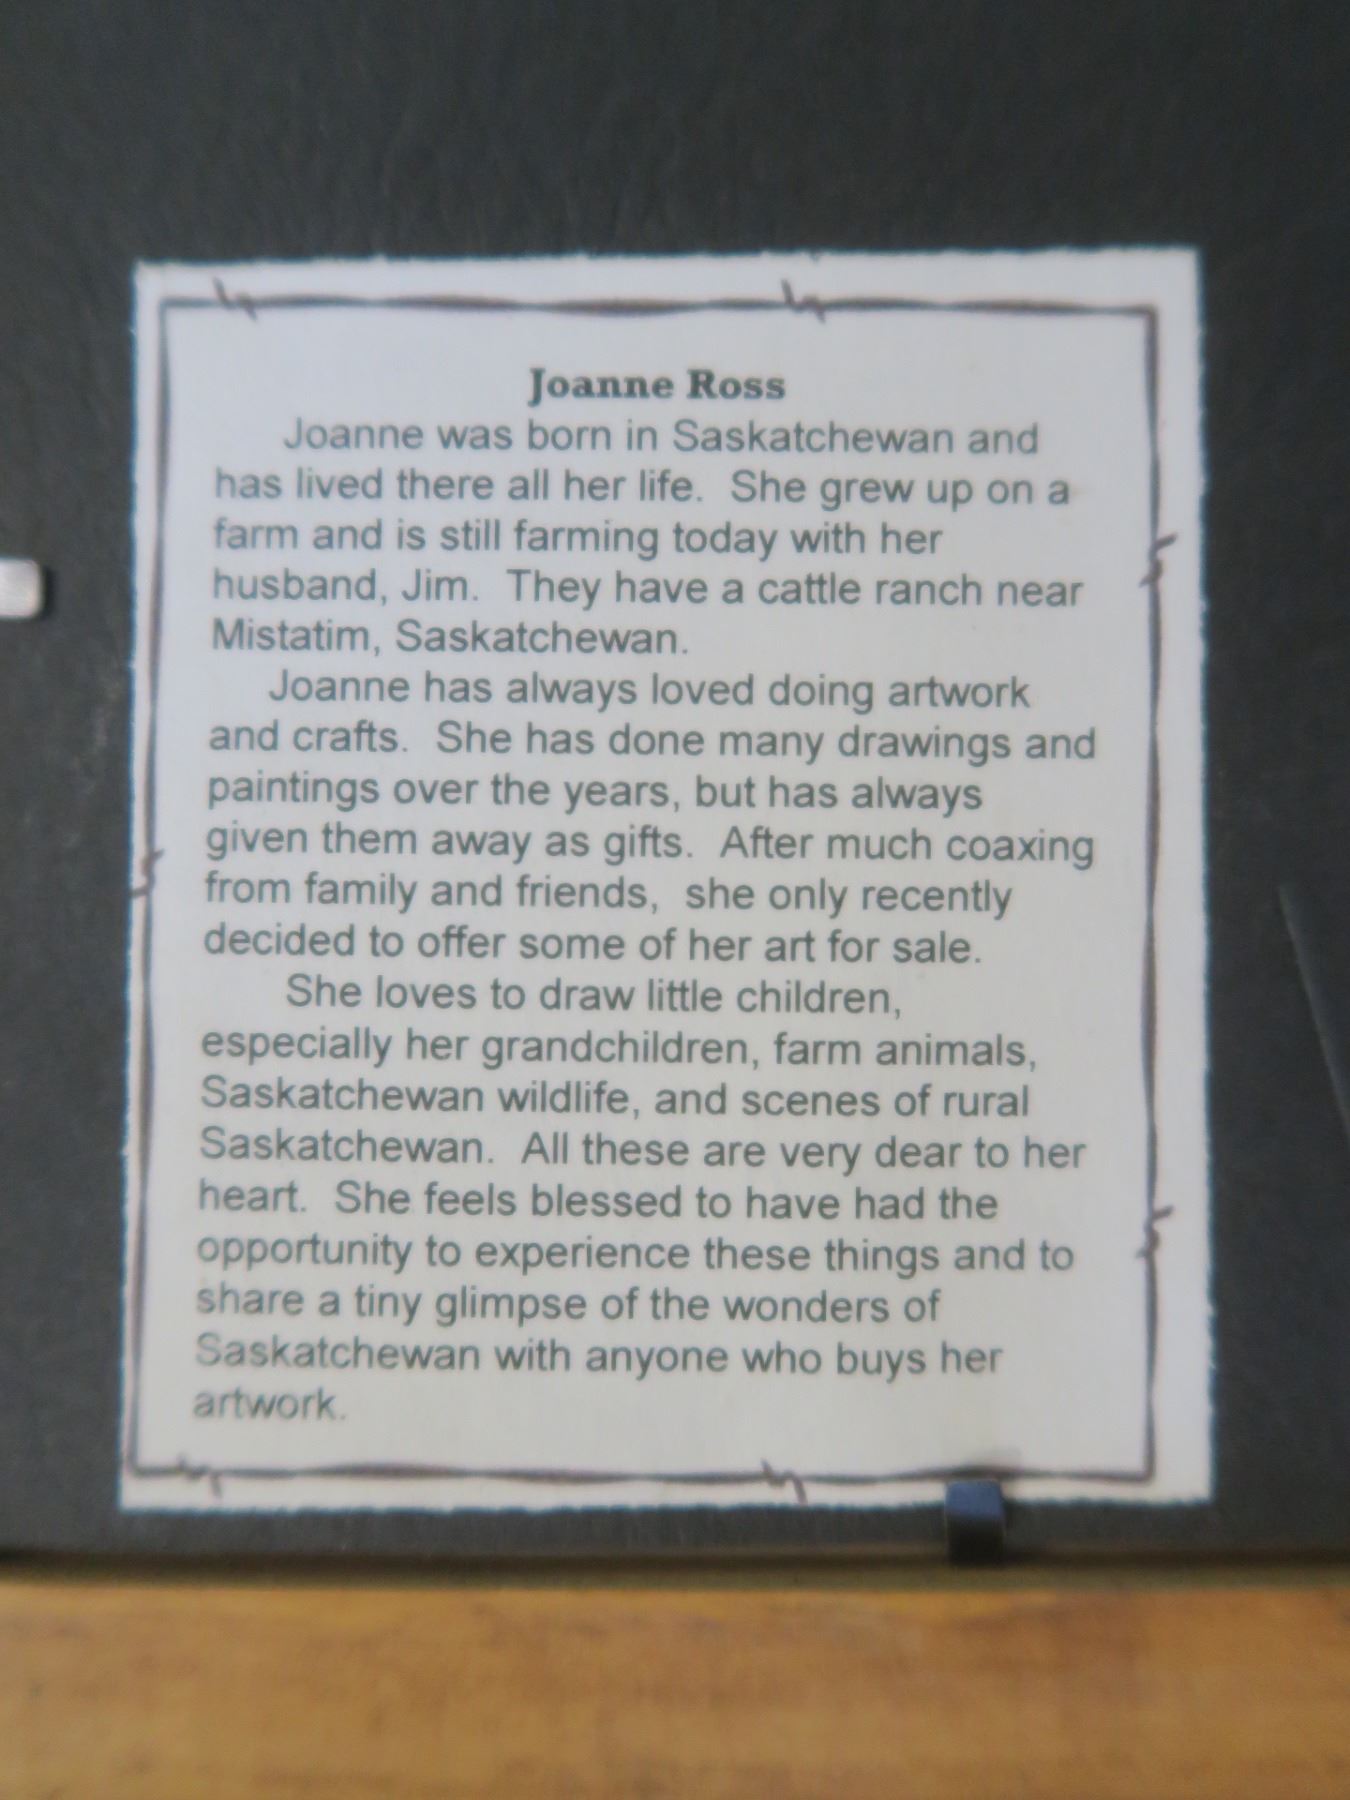 Joanne Ross
Joanne was born in Saskatchewan and
has lived there all her life.  She grew up on a
farm and is still farming today with her
husband, Jim.  They have a cattle ranch near
Mistatim, Saskatchewan.
Joanne has always loved doing artwork
and crafts.  She has done many drawings and
paintings over the years, but has always
given them away as gifts.  After much coaxing
from family and friends,  she only recently
decided to offer some of her art for sale.
She loves to draw little children,
especially her grandchildren, farm animals,
Saskatchewan wildlife, and scenes of rural
Saskatchewan.  All these are very dear to her
heart.  She feels blessed to have had the
opportunity to experience these things and to
share a tiny glimpse of the wonders of
Saskatchewan with anyone who buys her
artwork.